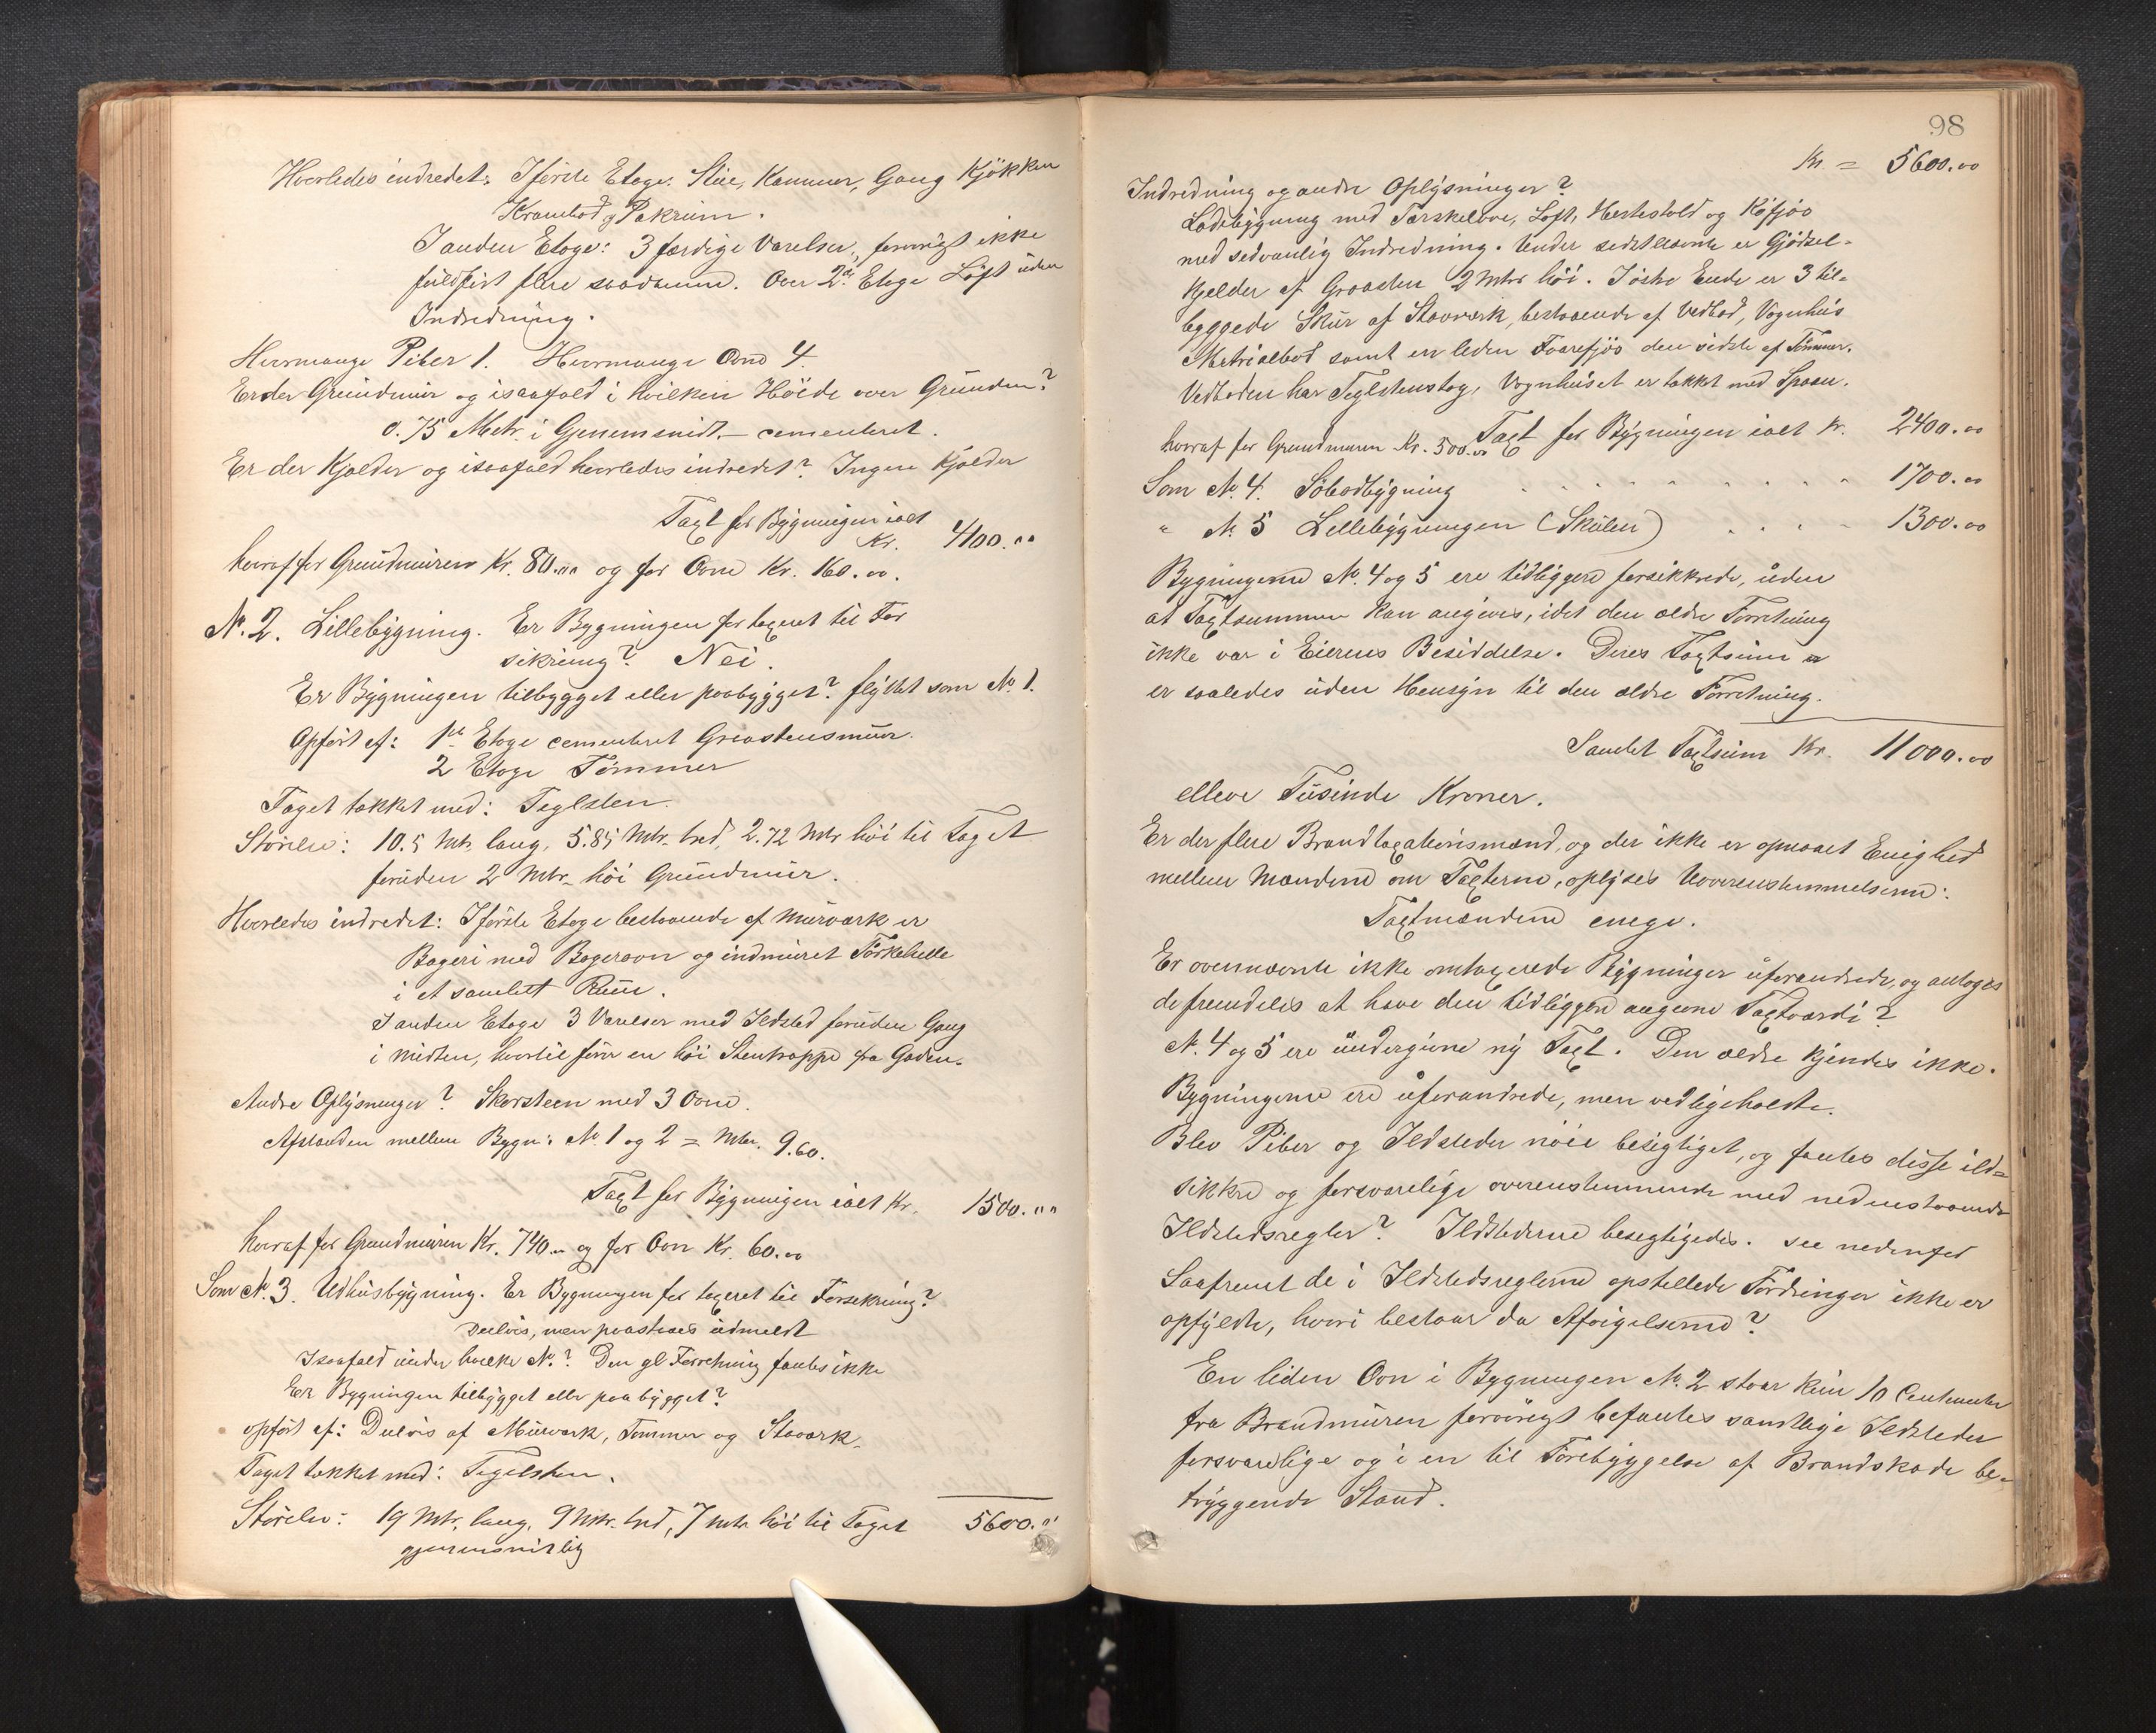 Hvorledes indredet: I förste Etage: Stue, Kammer, Gang Kjökken
Krambod og Pakrum.
I anden Etage: 3 færdige Værelser, forövrigt ikke
fuldfört flere saadanne. Over 2d. Etage Loft uden
Indredning.
Hvormange Piber 1. Hvormange Ovne 4.
Er der Grundmur og isaafald i hvilken Höide over Grunden?
0.75 Metr. i Gjennemsnidt, – cementeret.
Er der Kjælder og isaafald hvorledes indredet? Ingen Kjælder
Taxt for Bygningen ialt
Kr. 4100.00
hvoraf for Grundmuren Kr. 80.00 og for Ovne Kr. 160.00.
No. 2. Lillebygning. Er Bygningen för taxeret til For
sikring? Nei.
Er Bygningen tilbygget eller paabygget? flyttet som No. 1.
Opfört af: 1ste Etage cementeret Graastensmuur.
2 Etage Tömmer
Taget tækket med: Teglsten.
Störelse: 10.5 Mtr. lang, 5.85 Mtr. bred, 2.72 Mtr höi til Taget
foruden 2 Mtr. höi Grundmur.
Hvorledes indredet: I förste Etage bestaaende af Murværk er
Bageri med Bagerovn og indmuret Törkehelle
i et samlett Rum.
I anden Etage 3 Værelser med Ildsted foruden Gang
i Midten, hvortil förer en höi Stentrappe fra Gaden.
Andre Oplysninger? Skorsteen med 3 Ovne.
Afstanden mellem Bygn: No. 1 og 2 = Mtr. 9.60.
Taxt for Bygningen ialt Kr. 1500.00
hvoraf for Grundmuren Kr. 740.00 og for Ovn Kr. 60.00
Som No. 3. Udhusbygning. Er Bygningen för taxeret til Forsekring?
Deelvis, men paastaaes udmeldt
Isaafald under hvilke No.? Den gl Forretning fantes ikke
Er Bygningen tilbygget eller paabygget?
opfört af: Delvis af Murværk, Tömmer og Stavværk.
Taget tækket med: Tegelsten.
Störelse: 19 Mtr. lang, 9 Mtr. bred, 7 Mtr höi til Taget 5600.00
gjennemsnitlig
98
Kr. = 5600.00
Indredning og andre Oplysninger?
Ladebygning med Tærskelove, Loft, Hestestald og Köfjös
med sedvanlig Indredning. Under sidstnævnte er Gjödsel-
kjelder af Graasten 2 Mtr höi. I östre Ende er 3 til-
byggede Skur af Stavværk, bestaaende af Vedbod, Vognhus
Matrialbod samt en liden Faarefjös den sidste af Tömmer.
Vedboden har Teglstenstag, Vognhuset er tækket med Spaan.
hvoraf for Grundmuren Kr. 500.00 Taxt for Bygningen ialt Kr. 2400.00
Som No. 4. Söbodbygning . . . . . . . . 1700.00
" No. 5 Lillebygningen (Skulen) . . . . 1300.00
Bygningerne No. 4 og 5 ere tidligere forsikkrede, uden
at Taxtsummen kan angives, idet den ældre Forretning
ikke var i Eierens Besiddelse. Deres Taxtsum
er saaledes uden Hensyn til den ældre Forretning.
Samlet Taxtsum Kr. 11000.00
elleve Tusinde Kroner.
Er der flere Brandtaxationsmænd, og der ikke er opnaaet Enighed
mellem Mændene om Taxterne, oplyses Uoverenstemmelserne:
Taxtmændene enige.
Er ovennævnte ikke omtaxerede Bygninger uforandrede, og antages
de fremdeles at have den tidligere angivne Taxtværdi?
No. 4 og 5 ere undergivne ny Taxt. Den ældre kjendes ikke.
Bygningerne ere uforandrede, men vedligeholdte.
Blev Piber og Ildsteder nöie besigtiget, og fantes disse ild-
sikkre og forsvarlige overenstemmende med nedenstaaende
Ildstedsregler? Ildstederne besigtigedes. see nedenfor
Saafremt de i Ildstedsreglerne opstillede Fordringer ikke er
opfyldte, hvori bestaar da Afvigelserne?
En liden Ovn i Bygningen No. 2 staar kun 10 Centimeter
fra Brandmuren forövrigt befantes samtlige Ildsteder
forsvarlige og i en til Forebyggelse af Brandskade be-
tryggende Stand.